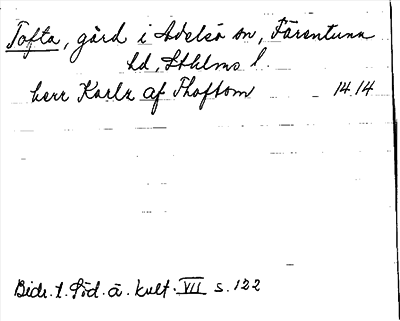 Tofta, gård i Adelsö sn, Färentuna
hd, Sthlms l.
herr Karlx af Thoftom 1414
Bidr. t. Söd. ä. kult. VII s. 122